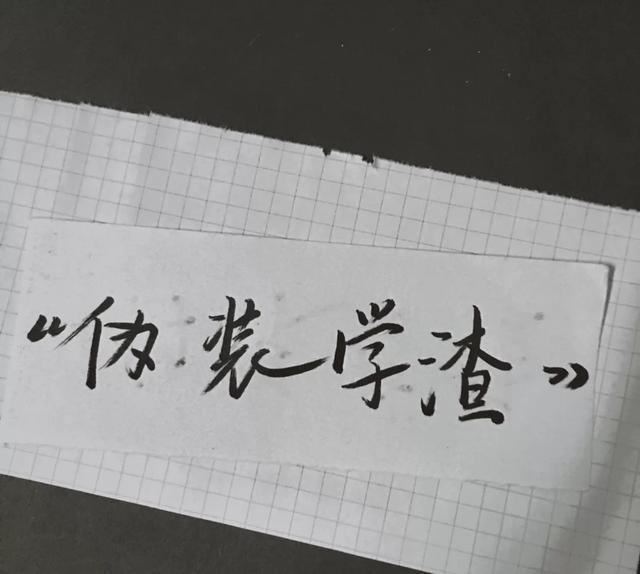 “伪装学渣”